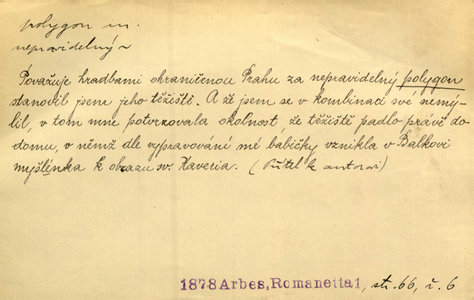 polygon m.
nepravidelný ~
Považuje hradbami ohraničenou Prahu za nepravidelný polygon
stanovil jsem jeho těžiště. A že jsem se v kombinaci své nemý-
lil, v tom mne potvrzovala okolnost že těžiště padlo právě do
domu, v němž dle vypravování mé babičky vznikla v Balkovi
myšlénka k obrazu sv. Xaveria. (Přítel k autorovi)
1878 Arbes, Romanetta 1, str. 66, ř. 6